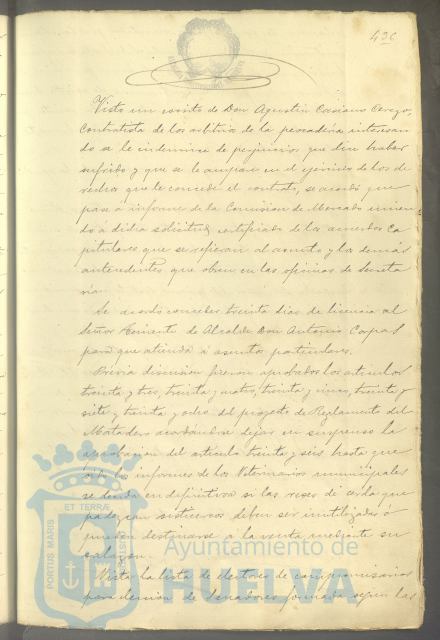 436
Visto un escrito de Don Agustin Casiano Cerezo,
Contratista de los arbitrios de la pescaderia interesan
do se le indemnice de perjuicios que dice haber
sufrido y que se le ampare en el ejercicio de los de
rechos que le concede el contrato, se acordó que
pase a informe de la Comision de Mercado unien
do á dicha solicitud certificado de los acuerdos ca
pitulares que se refieran al asunto y los demás
antecedentes que obren en las oficinas de Secreta
ria.
Se acordó conceder treinta dias de licencia al
Señor Teniente de Alcalde Don Antonio Corpas
para que atienda á asuntos particulares.
Prévia discusion fueron aprobados los articulos
treinta y tres, treinta y cuatro, treinta y cinco, treinta y
siete y treinta y ocho del proyecto de Reglamento del
Matadero acordándose dejar en suspenso la
aprobacion del articulo treinta y seis hasta que
los informes de los Veterinarios municipales
se decida en definitiva si las reses de cerda que
padezcan cisticercos deben ser inutilizadas ó
pueden destinarse a la venta mediante su

Vista la lista de electores de compromisarios
para eleccion de Senadores formada segun las
PORTUS MARIS ET TERRÆ CUSTODIA
Ayuntamiento de
HUELVA